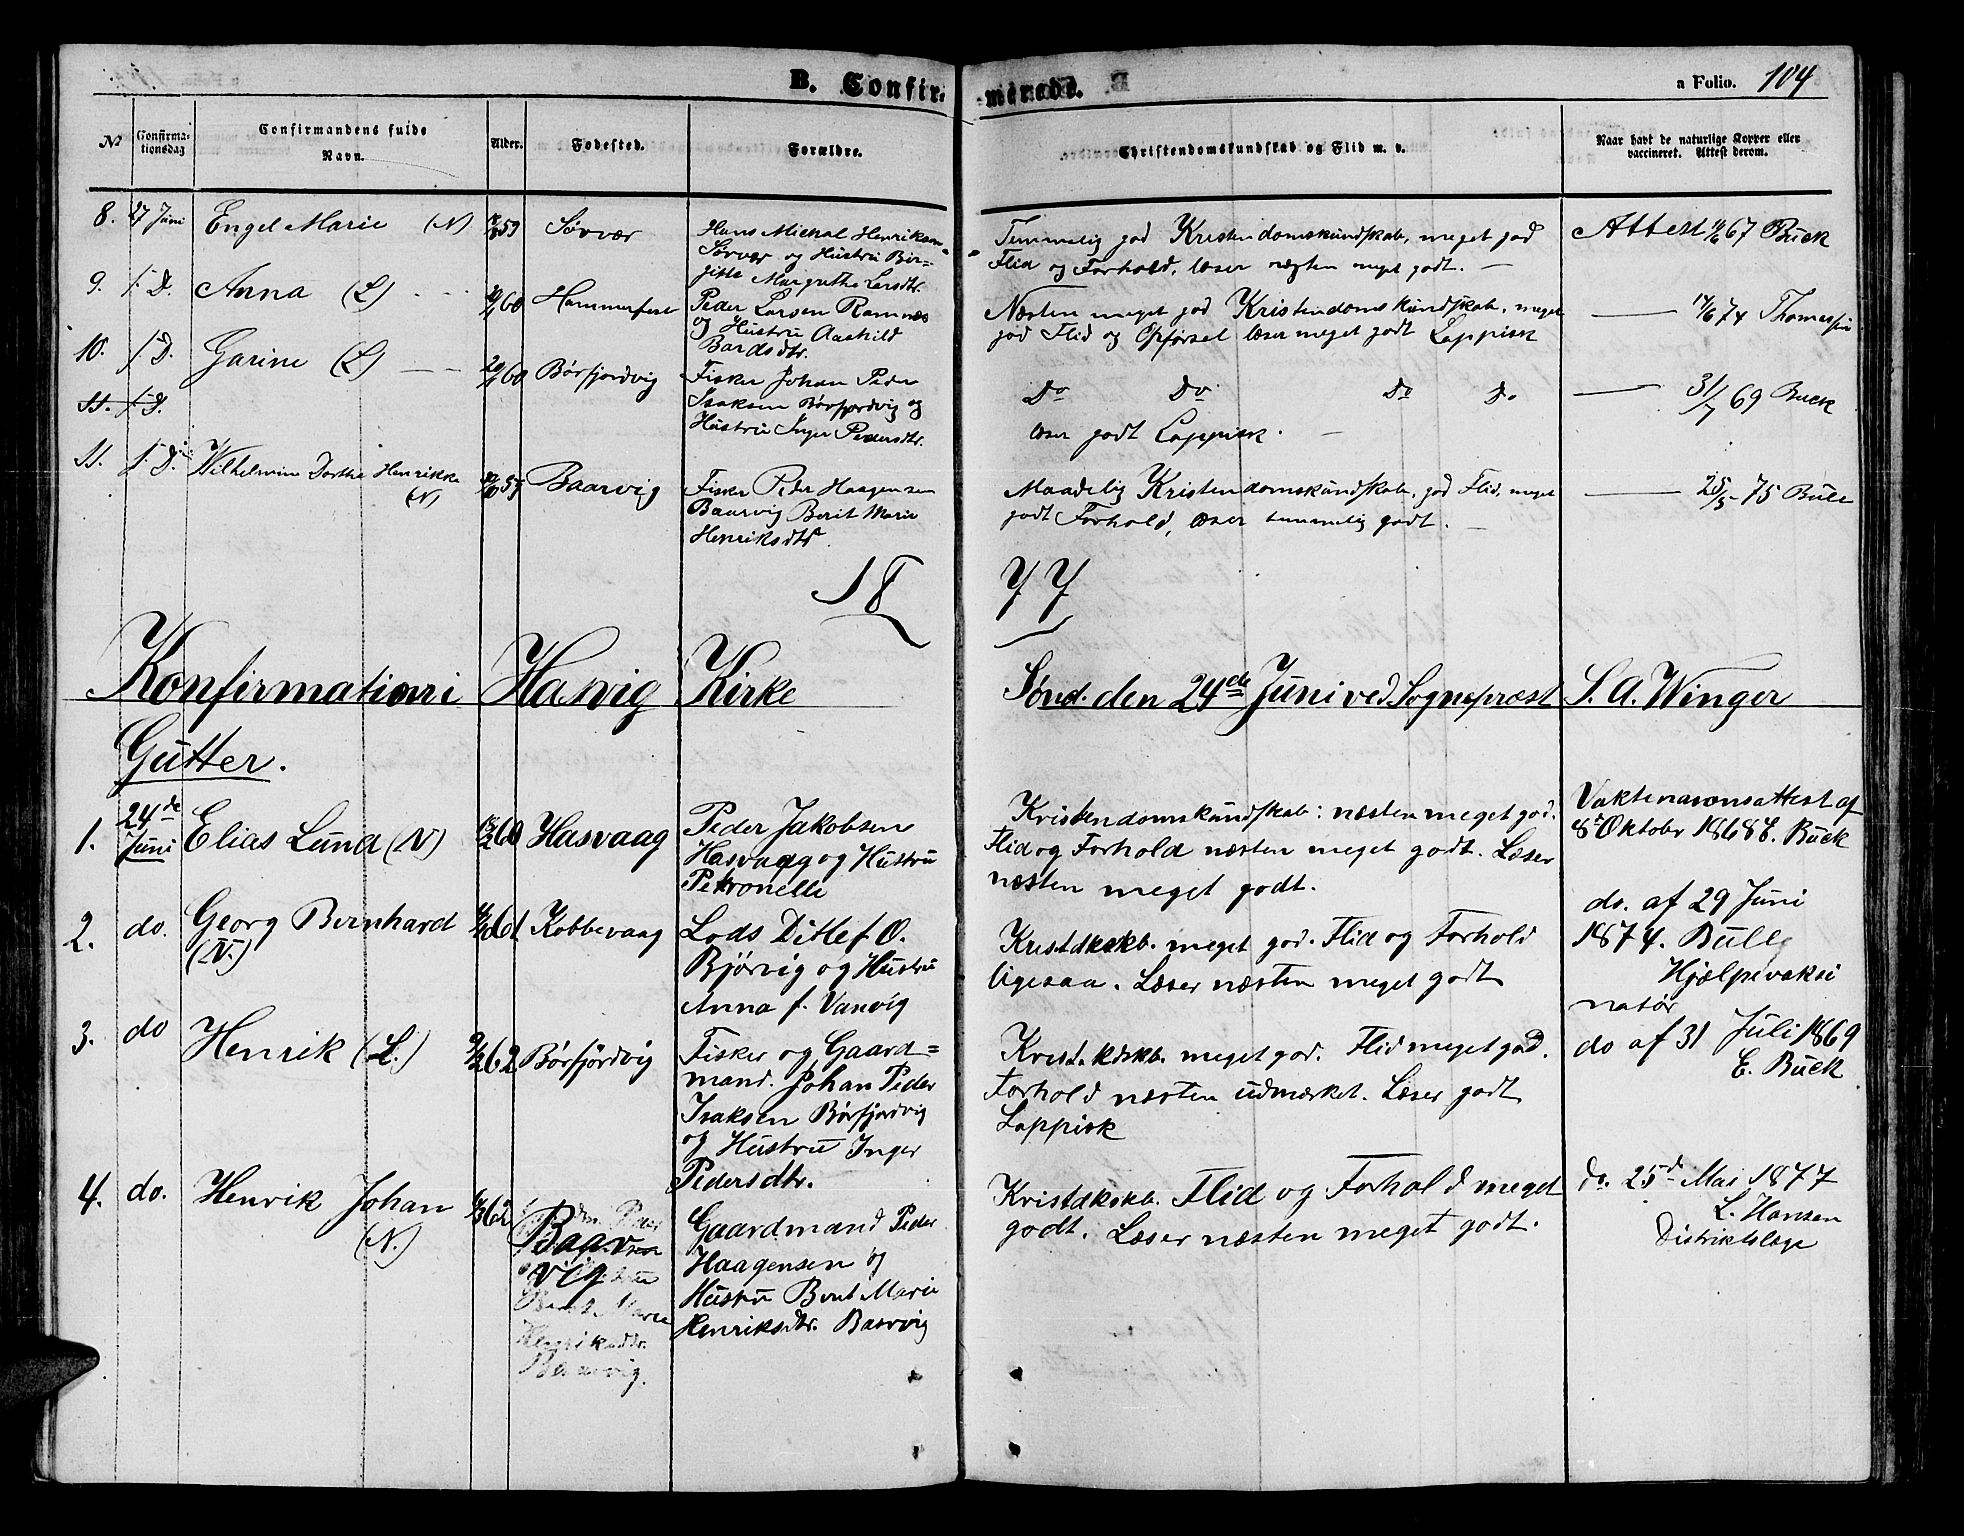 B. Confir- merede. a Folio. 104
No Confirma-tionsdag Confirmandens fulde Navn. Alder. Fødested. Forældre. Christendomskundskab og Flid m. v. Naar havt de naturlige Kopper eller vaccineret. Attest derom.
8. 27 Juni Engel Marie (N) 59 Sørvær
Hans Michal Henriksen
Sørvær og Hustru Bir=
gitte Margrethe Larsdtr.
Temmelig god Kristendomskundskab, meget god
Flid og Forhold, læser næsten meget godt. —
Attest 67 Buck
9. D. Anna (L) 60 Hammerfest
Peder Larsen Ramnæs
og Hustru Aashild
Bardsdtr.
Næsten meget god Kristendomskundskab, meget
god Flid og Opførsel læser meget godt Lappisk
— 74 Thomassen
10. D. Garine (L) — 60 Børfjordvig
Fisker Johan Peder
Isaksen Børfjordvig og
Hustru Inger Pedersdtr.
Do Do Do Do
læser godt Lappisk. —
— 31/7 69 Buck
11. D.
11. D. Wilhelmine Dorthe Henrikke
(N)
Baarvig
Fisker Peder Haagensen
Baarvig Berit Marie
Henriksdtr.
Maadelig Kristendomskundskab, god Flid, meget
godt Forhold, læser temmelig godt. —
— 25/5 - 75 Bull
18 77
Konfirmation i Hasvig Kirke Sønd. den 24de Juni ved Sognepræst S. A. Winger
Gutter.
1. 24de Juni Elias Lund (N) 60 Hasvaag
Peder Jakobsen
Hasvaag og Hustru
Petronelle
Kristendomskundskab: næsten meget god.
Flid og Forhold næsten meget godt. Læser
næsten meget godt.
Vaktenasonsattest af
8de Oktobr 1868 E. Buck
2. do. Georg Bernhard
(N.)
61 Kobbevaag
Lods Ditlef O.
Bjørvig og Hustru
Anna f. Vanvig
Kristdkskb. meget god. Flid og Forhold
ligesaa. Læser næsten meget godt
do. af 29 Juni
1874. Bull
Hjælpevaksi
natør
3. do Henrik (L.) 62 Børfjordvig
Fisker og Gaard=
mand. Johan Peder
Isaksen Børfjordvig
og Hustru Inger
Pedersdtr.
Krist.kdskb. meget god. Flid meget god.
Forhold næsten udmærket. Læser godt
Lappisk
do af 31 Juli 1869
E. Buck
4. do. Henrik Johan
(N.)
62 Baarvig
Gaardmand Peder
Haagensen og
Hustru Berit Marie
Henriksdtr. Baarvig
Kristdkskb. Flid og Forhold meget
godt. Læser næsten meget godt.
do. 25d Mai 1877
L. Hansen
Distriktslæge